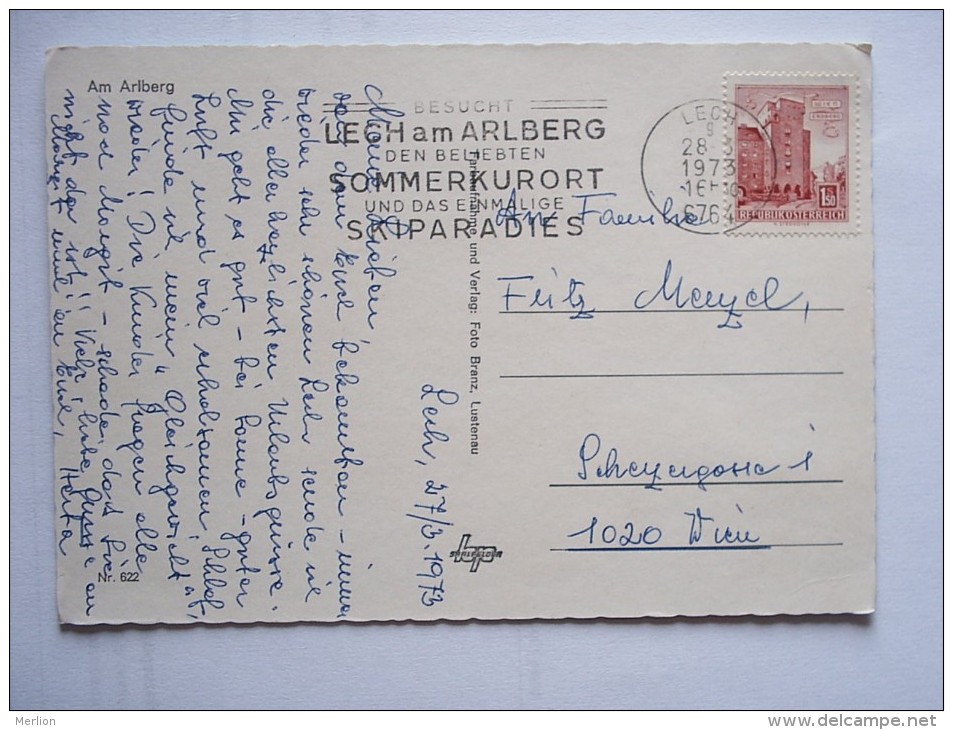 Am Arlberg
BESUCHT
LECH am ARLBERG
DEN BELIEBTEN
SOMMERKURORT
UND DAS EINMALIGE
SKIPARADIES
LECH
28
1973
6764
1.50
REPUBLIK ÖSTERREICH
Meine Lieben!
von dem Euch bekannten – immer
wieder sehr schönen Lech sende ich
die allerherzlichsten Urlaubsgrüsse.
Mir geht es gut – bei Sonne – guter
Luft und viel erholsamen Schlaf,
finde ich mein "Gleichgewicht"
wieder! Die Kinder fragen alle
nach Margit – schade, dass Sie
nicht da ist! Viele liebe Grüsse an
Euch, Herta
Lech, 27/3.1973
Nr. 622
Farbaufnahme und Verlag: Foto Branz, Lustenau
An Familie
Fritz Menzel,
1020 Wien
Merlion
www.delcampe.net